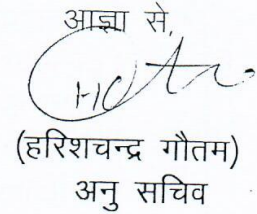 आज्ञा से,
(हरिशचन्द्र गौतम)
अनु सचिव